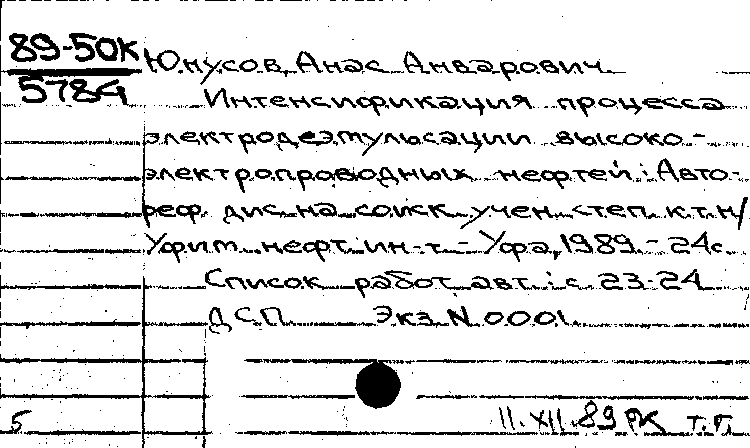 89-50К
5784
Юнусов, Анас Анварович.
Интенсификация процесса
электродеэмульсации высоко-
электропроводных нефтей: Авто-
реф. дис. на соиск. учен. степ. к.т.н/
Уфим. нефт. ин-т. - Уфа, 1989. - 24с.
Список работ авт.: с. 23-24
ДСП Экз. N 0001.
5
11.XII.89 РК т.г.